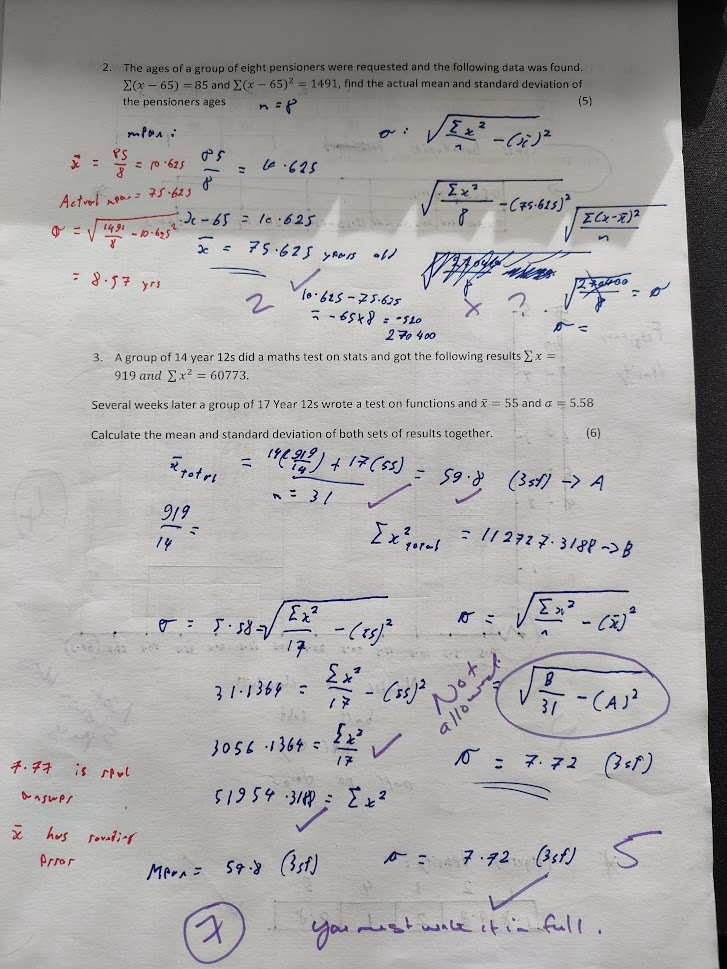 2. The ages of a group of eight pensioners were requested and the following data was found.
∑(x − 65) = 85 and ∑(x − 65)² = 1491, find the actual mean and standard deviation of
the pensioners ages (5)
n = 8
mean :
x̄ = 85/8 = 10.625
85/8 = 10.625
Actual mean = 75.625
σ = √(1491/8 − 10.625²)
= 8.57 yrs
x − 65 = 10.625
x̄ = 75.625 years old
2 ✓
10.625 − 75.625
= − 65 × 8 = −520
270400
σ : √(∑x²/n − (x̄)²)
√(∑x²/8 − (75.625)²)
√(∑(x−x̄)²/n)
√(270400/8) = σ
x ?
σ =
3. A group of 14 year 12s did a maths test on stats and got the following results ∑x =
919 and ∑x² = 60773.
Several weeks later a group of 17 Year 12s wrote a test on functions and x̄ = 55 and σ = 5.58
Calculate the mean and standard deviation of both sets of results together. (6)
x̄ total = 14(919/14) + 17(55) / n = 31 = 59.8 (3sf) → A
919/14 =
∑x² total = 112727.3188 → B
σ = 5.58 = √(∑x²/17 − (55)²)
31.1364 = ∑x²/17 − (55)²
3056.1364 = ∑x²/17 ✓
51954.3188 = ∑x²
✓
σ = √(∑x²/n − (x̄)²)
= √(B/31 − (A)²)
Not allowed
σ = 7.72 (3sf)
7.77 is real
answer
x̄ has rounding
error
Mean = 59.8 (3sf) σ = 7.72 (3sf) 5
✓
7
You must write it in full.